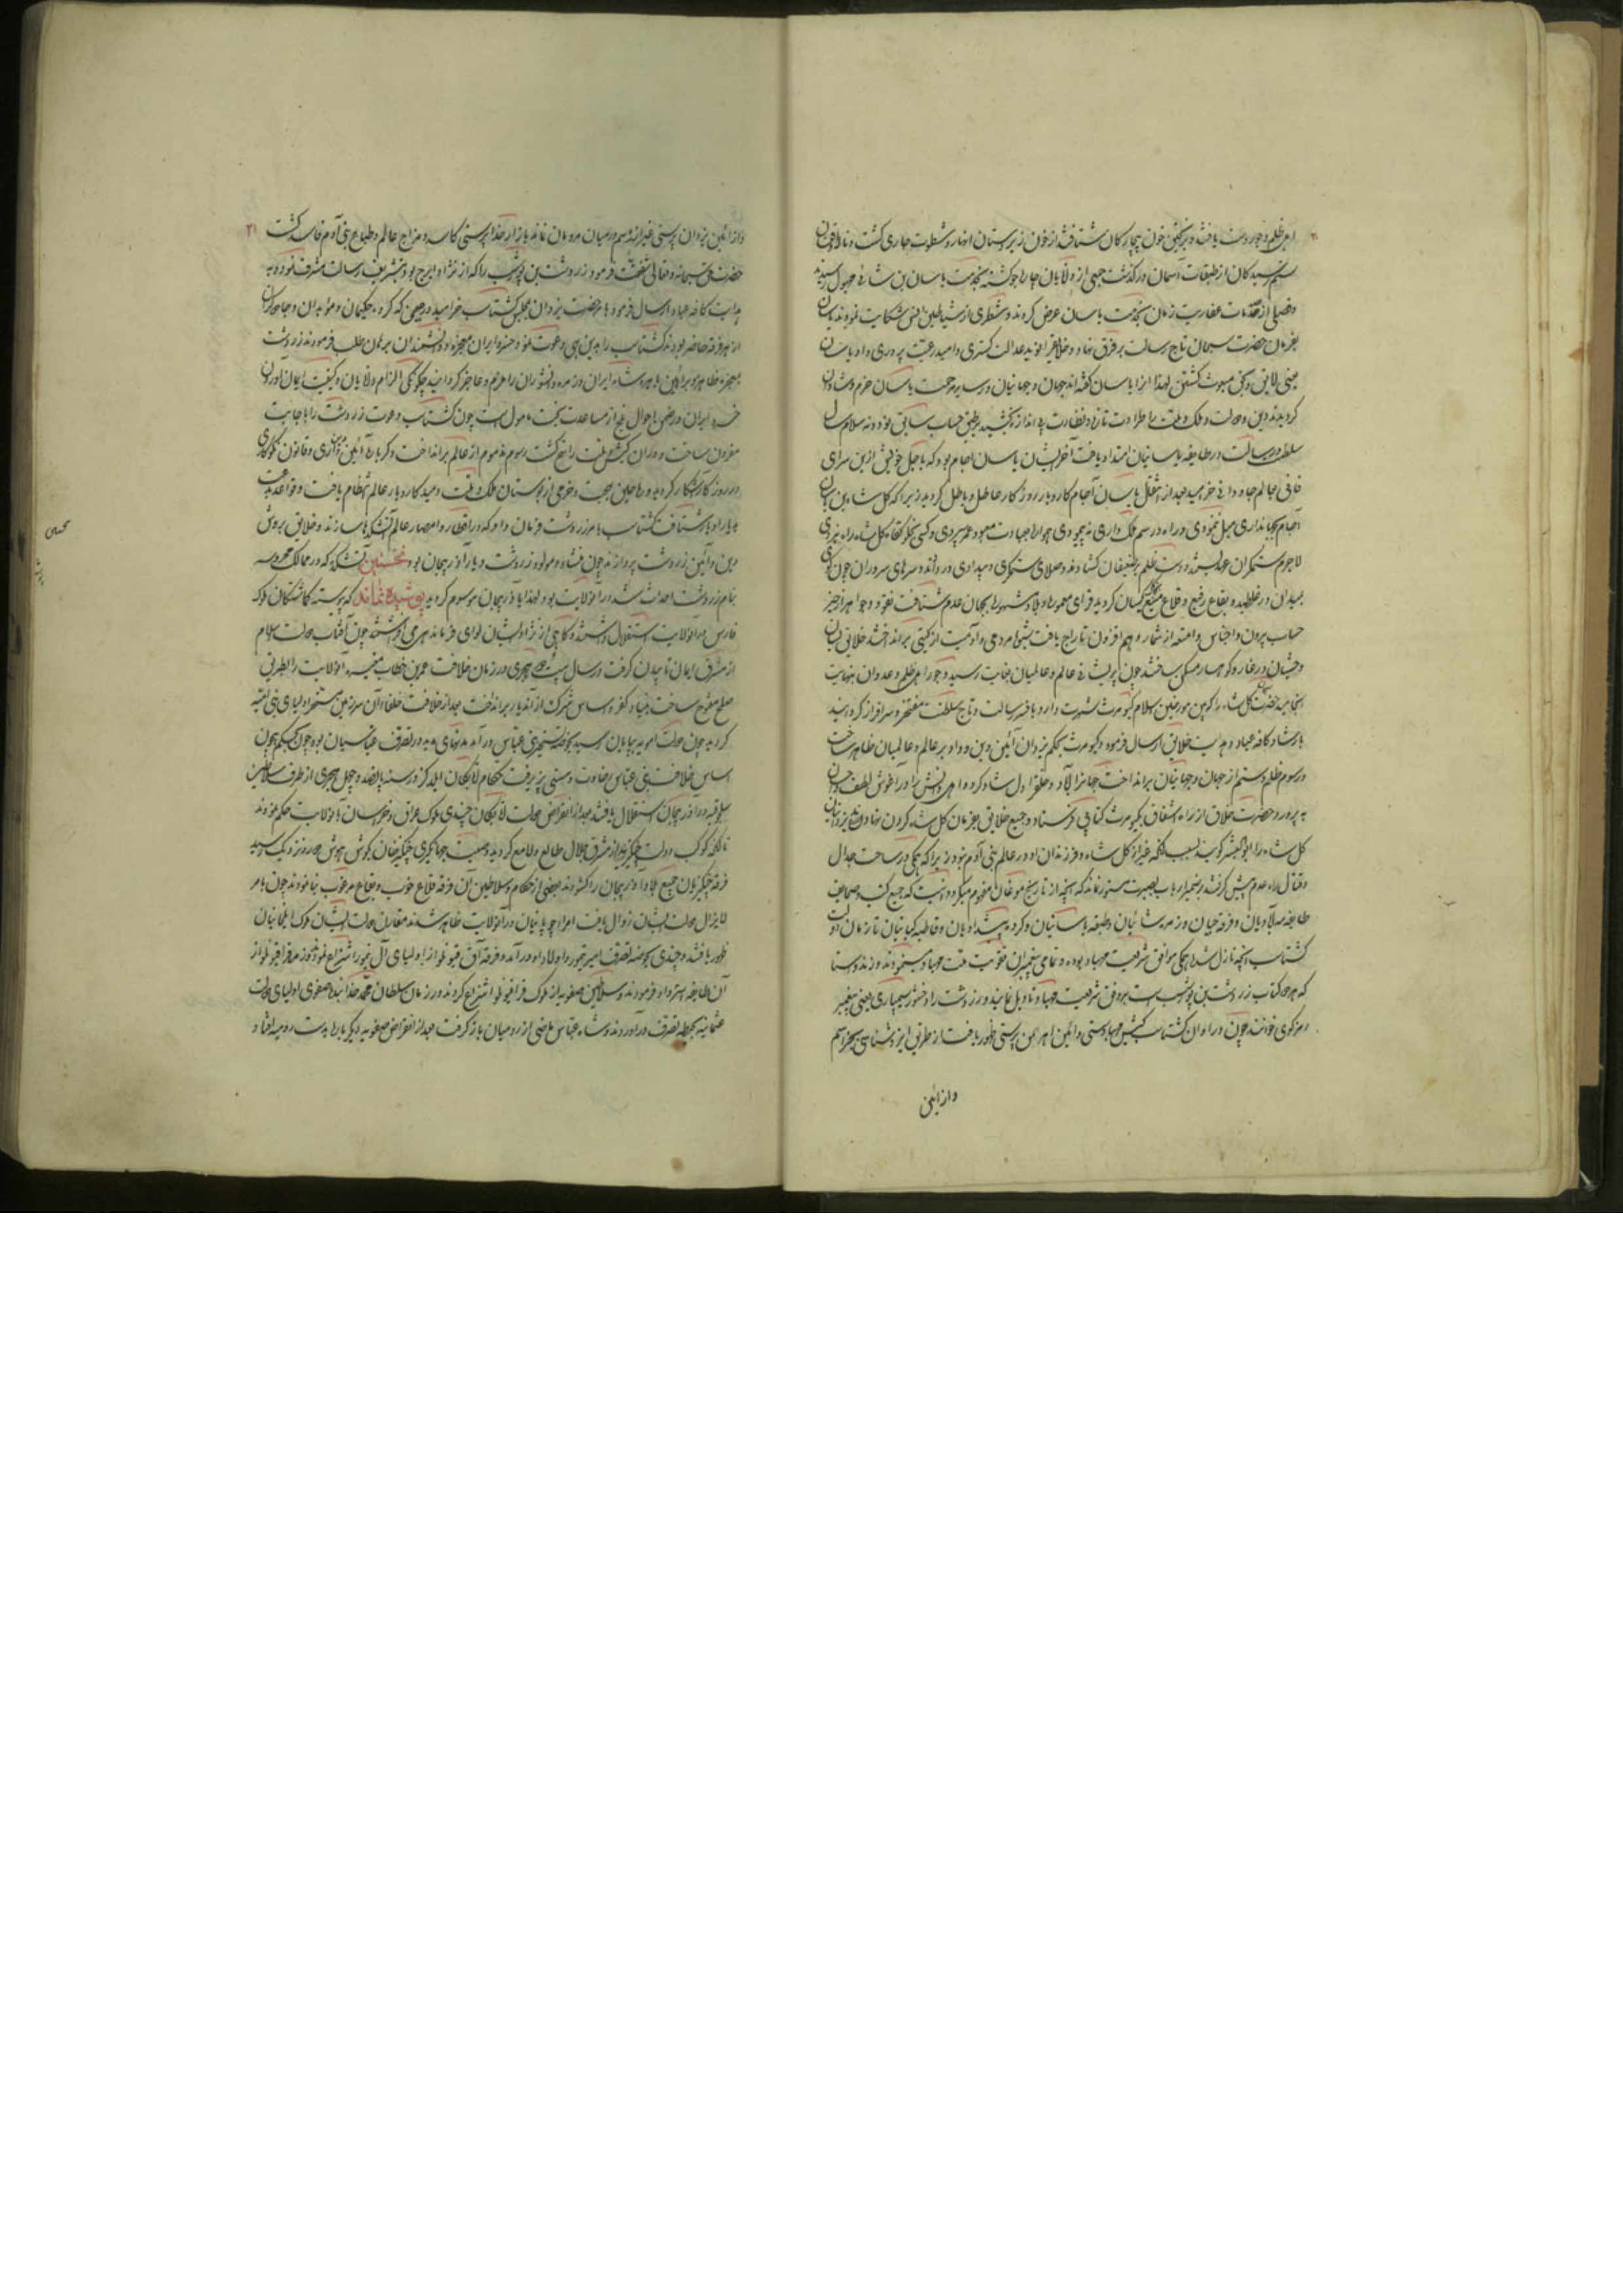 اهل ظلم و جور دست یافته و بریختن خون بیچارگان شتافتند از خون زیردستان انهار و شطوط جاری گشت و ناله و فغان
ستم رسیدگان از طبقات آسمان درگذشت جمعی از دانایان چاره جو گشته بخدمت یاسان بن شائی مهبول رسیدند
و فصلی از مقدمات زمان بخدمت یاسان عرض کردند و شطری از شیاطین انس شکایت نمودند یاسان
بفرمان حضرت سبحان تاج رسالت بر فرق نهاد و خلایق را نوید عدالت گستری و امید رعیت پروری داد یاسان
بمعنی لایق و بحق مبعوث گشتن لهذا او را یاسان گفته اند جهان و جهانیان در سایه مرحمت یاسان خرم و شادان
گردیدند دین و دولت و ملک و ملت را طراوت تازه و نظارت بی اندازه بخشید بطریق حساب سابق نود و نه سلام سال
سلطنت و رسالت در طایفه یاسانیان امتداد یافت آخر ایشان یاسان اجام بود که باجل خویش ازین سرای
فانی بعالم جاودانی خرامید بعد از انتقال یاسان آجام کار و بار روزگار عاطل و باطل گردید زیرا که گل شاه بن یاسان
آجام بجهانداری میل ننمودی و راه و رسم ملک داری نه پیمودی همواره بعبادت معبود عمر سپردی و کسی بخلوتگاه گل شاه راه نبردی
لاجرم ستمگران عهد بستند و دست ظلم بر ضعیفان گشادند و صلای ستمگری و بیدادی در دادند و سرهای سروران چون گوی
بمیدان در غلطید و بقاع رفیع و قلاع منیع یکسان گردید قرای معموره و بلاد و شهرها بجهان عدم شتافت نقود و جواهر از حیز
حساب بیرون و اجناس و امتعه از شمار و هم افزون تاراج یافت شیوه مردمی و آدمیت از گیتی برانداختند خلایق بسان
وحشیان در غار و کوهسار مسکن ساختند چون پریشانی عالم و عالمیان بغایت رسید و جور اهل ظلم و عدوان بنهایت
انجامید حضرت گل شاه را که بین مورخین اسلام کیومرث شهرت دارد بافسر رسالت و تاج سلطنت مفتخر و سرافراز گردانید
بارشاد کافه عباد و هدایت خلایق ارسال فرمود و کیومرث بحکم یزدان آئین دین و داد بر عالم و عالمیان ظاهر ساخت
و رسوم ظلم و ستم از جهان و جهانیان برانداخت جهانرا آباد و خلق را دل شاد کرد و اهل دانش را در آغوش لطف و احسان
به پرورد حضرت خلاق از راه اشفاق بکیومرث کتابی فرستاد و جمیع خلایق بفرمان گل شاه گردن نهادند یزدانیان
گل شاه را ابوالبشر گویند بسبب آنکه غیر از گل شاه و فرزندان او در عالم بنی آدم نبود زیرا که همگی در ساحت جدال
و قتال راه عدم پیش گرفتند بر ضمیر ارباب بصیرت مستور نماند که آنچه از تاریخ موغان مفهوم میگردد آنست که جمیع کتب و صحایف
طایفه مه آبادیان و فرقه جیان و زمره شائیان و طبقه یاسانیان و گروه پیشدادیان و قاطبه کیانیان تا زمان دولت
گشتاسب آنچه نازل شد همگی موافق شریعت مهاباد بوده و تمامی پیغمبران تقویت ملت مهاباد مینمودند و زند و ستا
که هم کتاب زردشت بن پورشسب است بر وفق شریعت مهاباد تاویل نمایند و زردشت را وخشور سیمباری یعنی پیغمبر
رمزگوی خوانند چون در اوان گشتاسب کیش مهاباد پرستی و آئین اهرمن پرستی ظهور یافت از طریق ایزد شناسی بجز اسم
و از آئین
و از آئین یزدان پرستی غیر از رسم در میان مردمان نماند بازار خدا پرستی کاسد و مزاج عالم و طبایع بنی آدم فاسد گشت ۳۱
حضرت حق سبحانه و تعالی شفقت فرمود زردشت بن پورشسب را که از نژاد ایرج بود بتشریف رسالت مشرف نمود و به
هدایت کافه عباد ارسال فرمود بامر حضرت یزدان بمجلس گشتاسب خرامید در حینی که گروه حکیمان و موبدان و
از هر فرقه حاضر بودند گشتاسب را بدین بهی دعوت نمود خسرو ایران معجزه و دانشمندان برهان طلب فرمودند زردشت
معجزه ظاهره و براهین باهره شاه ایران و زمره دانشوران را ملزم و عاجز گردانید چگونگی الزام دانایان و کیفیت ایمان آوردن
خسرو ایران در ضمن احوال بلخ از مساعدت بخت مامول است چون گشتاسب دعوت زردشت را باجابت
مقرون ساخت و در آن کیش و ملت راسخ گشت رسوم مذموم از عالم برانداخت و کرباره آئین و قانون نکوکاری
در روزگار آشکار گردید و ریاحین بهجت و خرمی از بوستان ملک و ملت دمید کار و بار عالم انتظام یافت و قواعد
گشتاسب بامر زردشت فرمان داد که در اقطار و امصار عالم آتشکدها سازند و خلایق بروش
دین و آئین زردشت پردازند چون منشاء و مولد زردشت دیار آذربیجان بود نخستین آتشکده که در ممالک محروسه
بنام زردشت احداث شد در آن ولایت بود لهذا بآذربیجان موسوم گردید پوشیده نماند که پیوسته گماشتگان ملوک
فارس در آن ولایت استقلال داشتند و گاهی از نژاد ایشان لوای فرماندهی می افراشتند چون آفتاب دولت اسلام
از مشرق ایمان تابیدن گرفت در سال بیست هجری در زمان خلافت عمر بن خطاب مغیره آن ولایت را بطریق
صلح مفتوح ساخت بنیاد کفر و اساس شرک از آن دیار برانداخت بعد از خلافت خلفا آن سرزمین مسخر اولیای بنی امیه
گردید چون دولت امویه بپایان رسید بحوزه تسخیر بنی عباس درآمد مدتهای مدید در تصرف عباسیان بود چون بحکم بیچون
اساس خلافت بنی عباس رخاوت و سستی پذیرفت حکام اتابکان ایلدگز در سنه پانصد و چهل هجری از طرف سلاطین
سلجوقیه در آذربیجان استقلال یافتند بعد از انقراض دولت اتابکان چندی ملوک عراق و خراسان بآن ولایت حکم نمودند
تا آنکه کوکب دولت چنگیزیه از مشرق جلال طالع و لامع گردید و صیت جهانگیری چنگیزخان بگوش هوش دور و نزدیک رسید
فرقه چنگیزیان جمیع بلاد آذربیجان را گشودند بعضی از حکام و سلاطین آن فرقه قلاع خوب و بقاع مرغوب بنا نمودند چون بامر
لایزال دولت ایشان زوال یافت امراء چوپانیان در آن ولایت ظاهر شدند مقارن دولت ایشان ملوک ایلکانیان
ظهور یافتند و چندی بحوضه تصرف امیر تیمور و اولاد او درآمد و فرقه آق قوینلو از اولیای آل تیمور انتزاع نمود و زمره قراقوینلو از
آن طایفه استرداد فرمودند و سلاطین صفویه از ملوک قراقوینلو انتزاع کردند و در زمان سلطان محمد خدابنده صفوی اولیای دولت
عثمانیه بحیطه تصرف درآوردند و شاه عباس ماضی از رومیان باز گرفت بعد از انقراض صفویه دیگر باره بدست رومیه افتاد